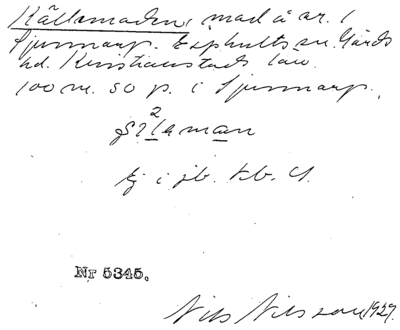 Källemaden, mad å ar. 1
Sjunnarp. Esphults sn. Gärds
hd. Kristianstads län.
100 m. SO p. i Sjunnarp.
Ej i jb. Kb.
Nr 5345.
Nils Nilsson, 1927.